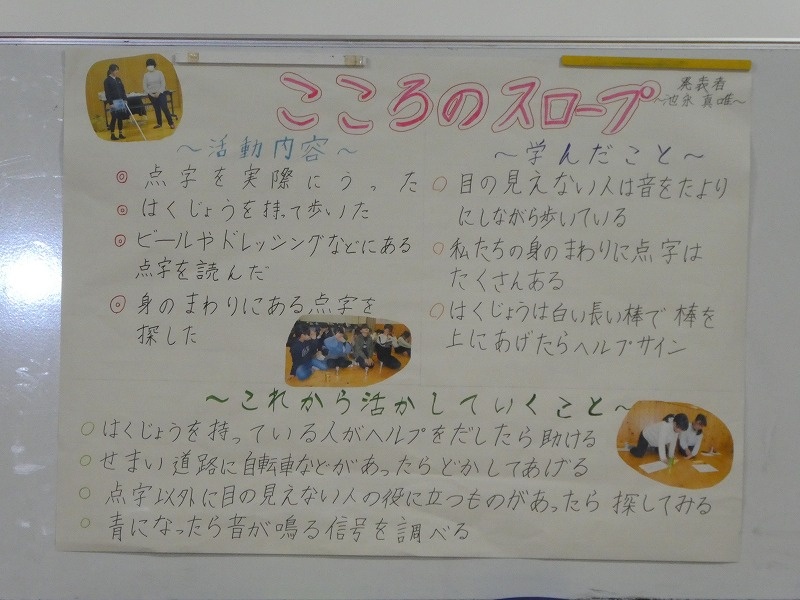 こころのスロープ
発表者
～池永 真唯～
～活動内容～
◎ 点字を実際にうった
◎ はくじょうを持って歩いた
◎ ビールやドレッシングなどにある
点字を読んだ
◎ 身のまわりにある点字を
探した
～学んだこと～
○ 目の見えない人は音をたより
にしながら歩いている
○ 私たちの身のまわりに点字は
たくさんある
○ はくじょうは白い長い棒で 棒を
上にあげたらヘルプサイン
～これから活かしていくこと～
○ はくじょうを持っている人がヘルプをだしたら助ける
○ せまい道路に自転車などがあったらどかしてあげる
○ 点字以外に目の見えない人の役に立つものがあったら 探してみる
○ 青になったら音が鳴る信号を調べる